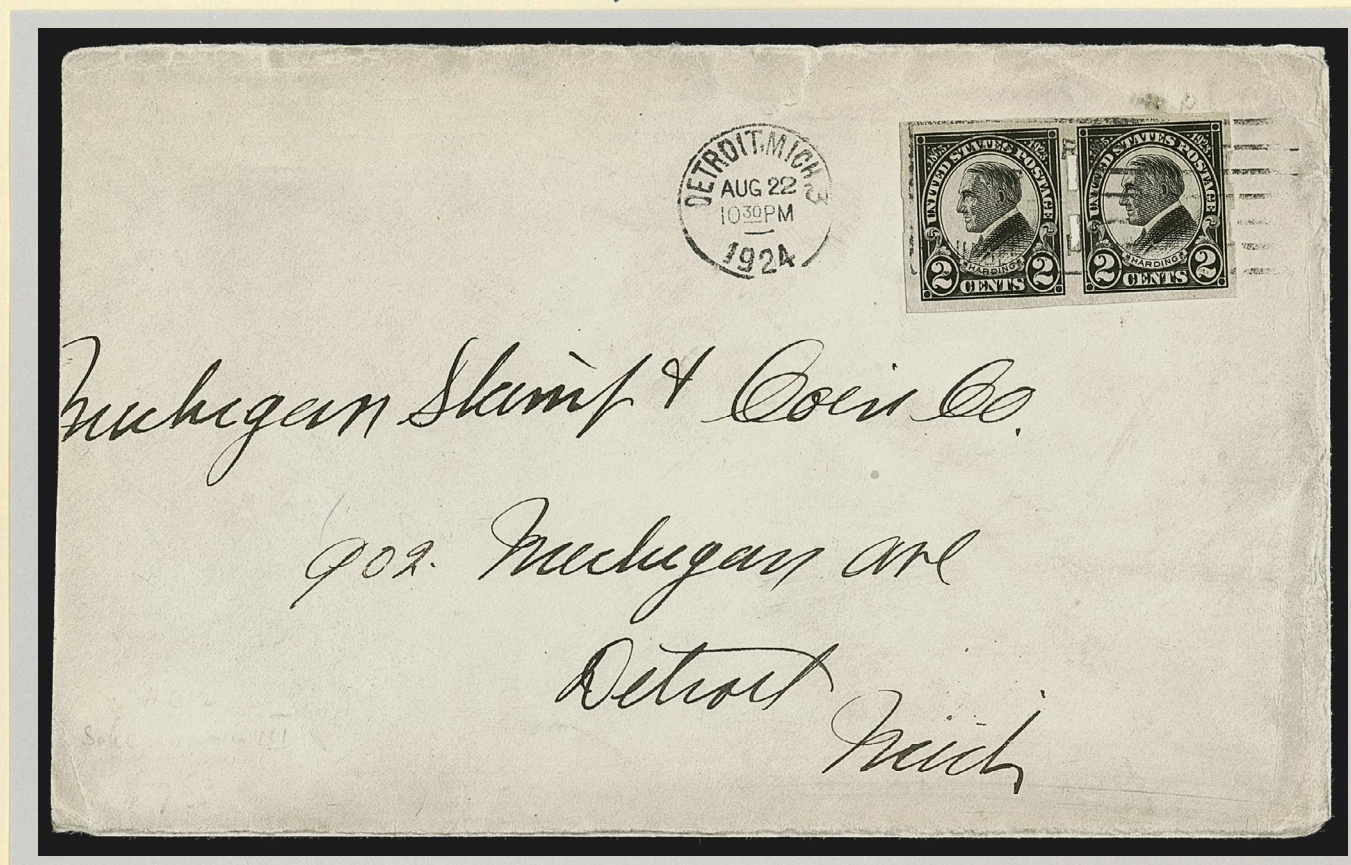 DETROIT, MICH. 3
AUG 22
10 30 PM
1924
1865 UNITED STATES POSTAGE 1923
HARDING
2 CENTS 2
1865 UNITED STATES POSTAGE 1923
HARDING
2 CENTS 2
Michigan Stamp & Coin Co.
902. Michigan ave
Detroit
Mich